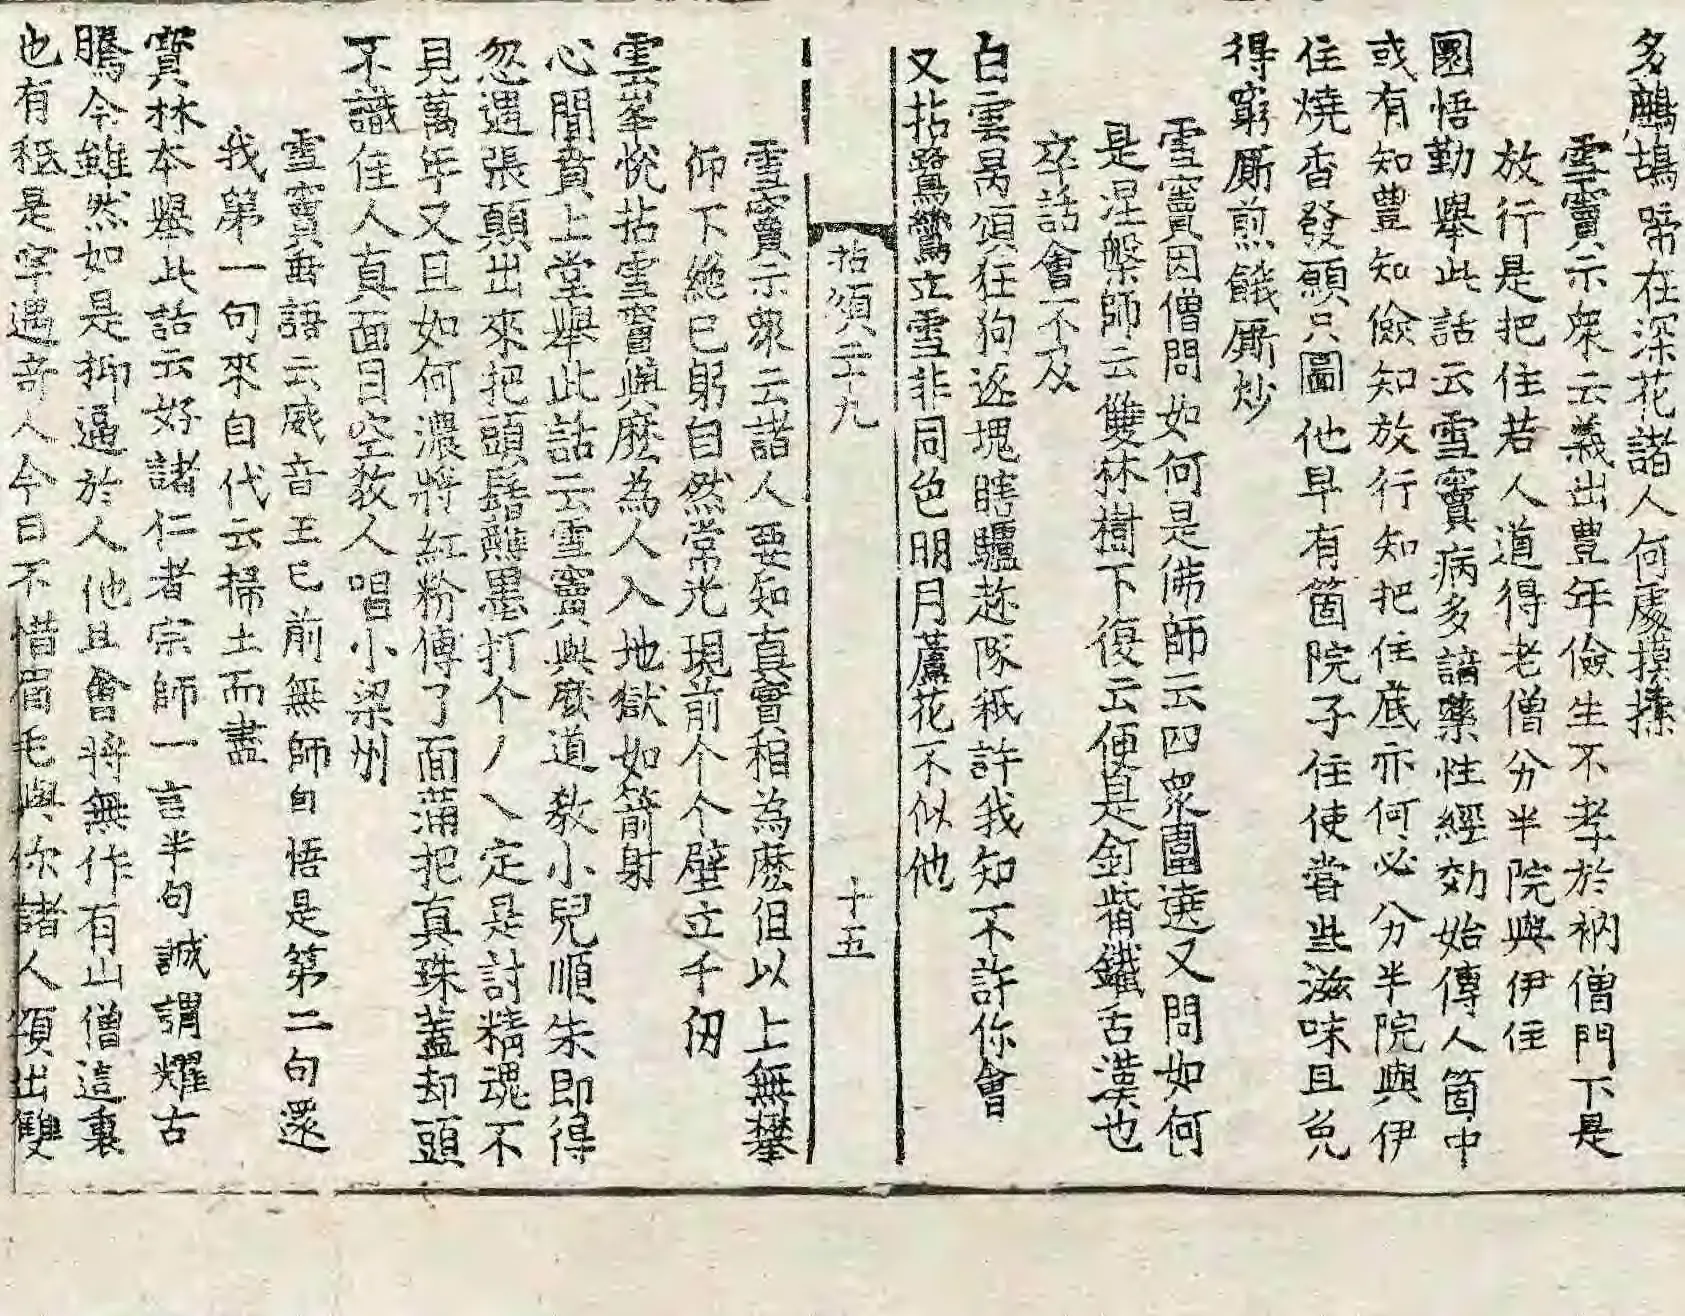 多鷓鴣啼在深花諸人何處摸𢱢
雪竇示衆云義出豊年儉生不孝於衲僧門下是
放行是把住若人道得老僧分半院與伊住
圜悟勤舉此話云雪竇病多諳藥性經効始傳人箇中
或有知豊知儉知放行知把住底亦何必分半院與伊
住燒香發願只圖他早有箇院子住使嘗些滋味且免
得窮厮煎餓厮炒
雪竇因僧問如何是佛師云四衆圍遶又問如何
是涅槃師云雙林樹下復云便是釘觜鐵舌漢也
卒話會不及
白雲昺頌狂狗逐塊瞎驢趂隊秖許我知不許你會
又拈鷺鷥立雪非同色明月蘆花不似他
拈頌二十九 十五
雪竇示衆云諸人要知真實相為麽但以上無攀
仰下絶已躬自然常光現前个个壁立千仞
雲峯恱拈雪竇與麽為人入地獄如箭射
心聞賁上堂舉此話云雪竇與麽道教小兒順朱即得
忽遇張顛出來把頭髻蘸墨打个丿乀定是討精魂不
見萬年又且如何濃將紅粉傅了面滿把真珠蓋却頭
不識佳人真面目空教人唱小梁州
雪竇垂語云威音王已前無師自悟是第二句還
我第一句來自代云掃土而盡
寳林本舉此話云好諸仁者宗師一言半句誠謂耀古
騰今雖然如是抑逼於人他且會將無作有山僧這裏
也有秖是罕遇奇人今日不惜眉毛與你諸人頌出雙